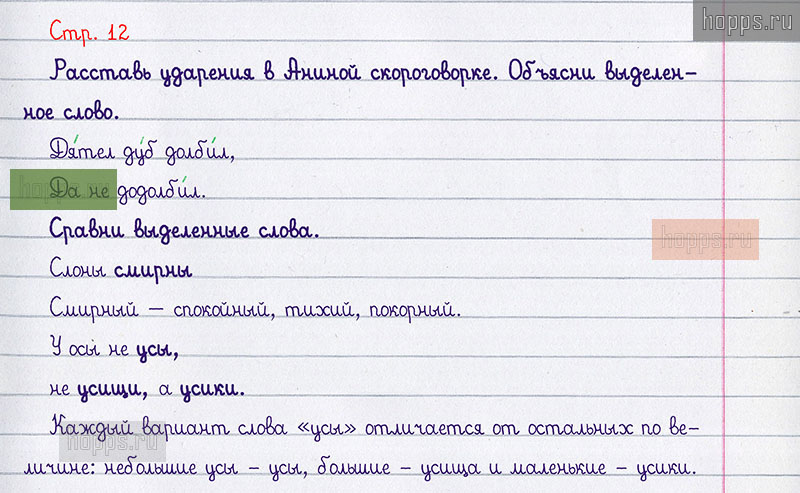 hopps.ru
Стр. 12
Расставь ударения в Аниной скороговорке. Объясни выделен-
ное слово.
Дя́тел ду́б долби́л,
hopps.ru
Да не додолби́л.
Сравни выделенные слова.
hopps.ru
Слоны смирны
Смирный – спокойный, тихий, покорный.
У осы не усы,
не усищи, а усики.
hopps.ru
Каждый вариант слова «усы» отличается от остальных по ве-
личине: небольшие усы – усы, большие – усища и маленькие – усики.